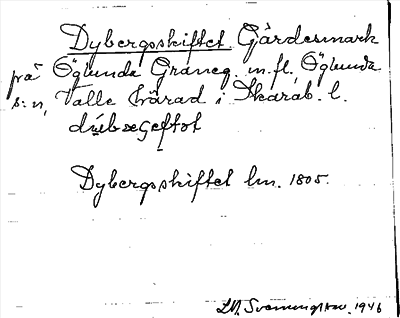 Dybergsskiftet Gärdesmark
på Öglunda Graneg. m.fl., Öglunda
s:n, Valle härad i Skarab. l.
Dybergsskiftet lm. 1805.
1946